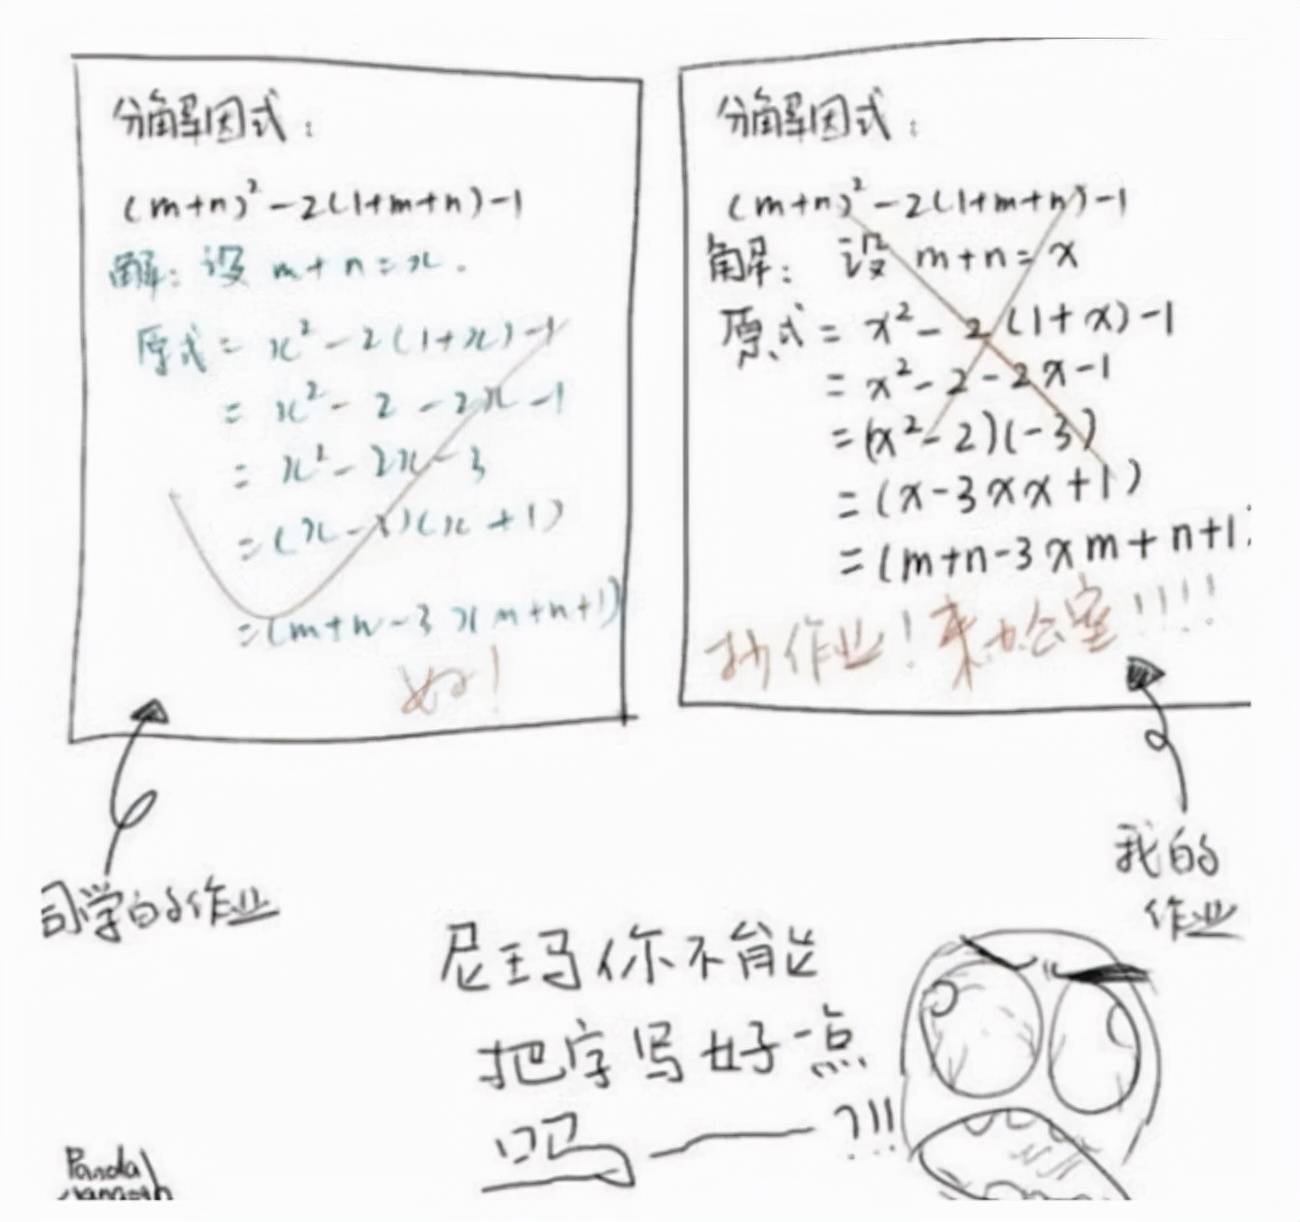 分解因式：
(m+n)²-2(1+m+n)-1
解：设 m+n=x.
原式= x²-2(1+x)-1
= x²-2-2x-1
= x²-2x-3
=(x-3)(x+1)
=(m+n-3)(m+n+1)
好!
同学的作业
分解因式：
(m+n)²-2(1+m+n)-1
解： 设 m+n=x
原式= x²-2(1+x)-1
= x²-2-2x-1
=(x²-2)(-3)
=(x-3xx+1)
=(m+n-3xm+n+1)
抄作业!来办公室!!!!
我的
作业
尼玛你不能
把字写好一点
吗——?!!!
Panda